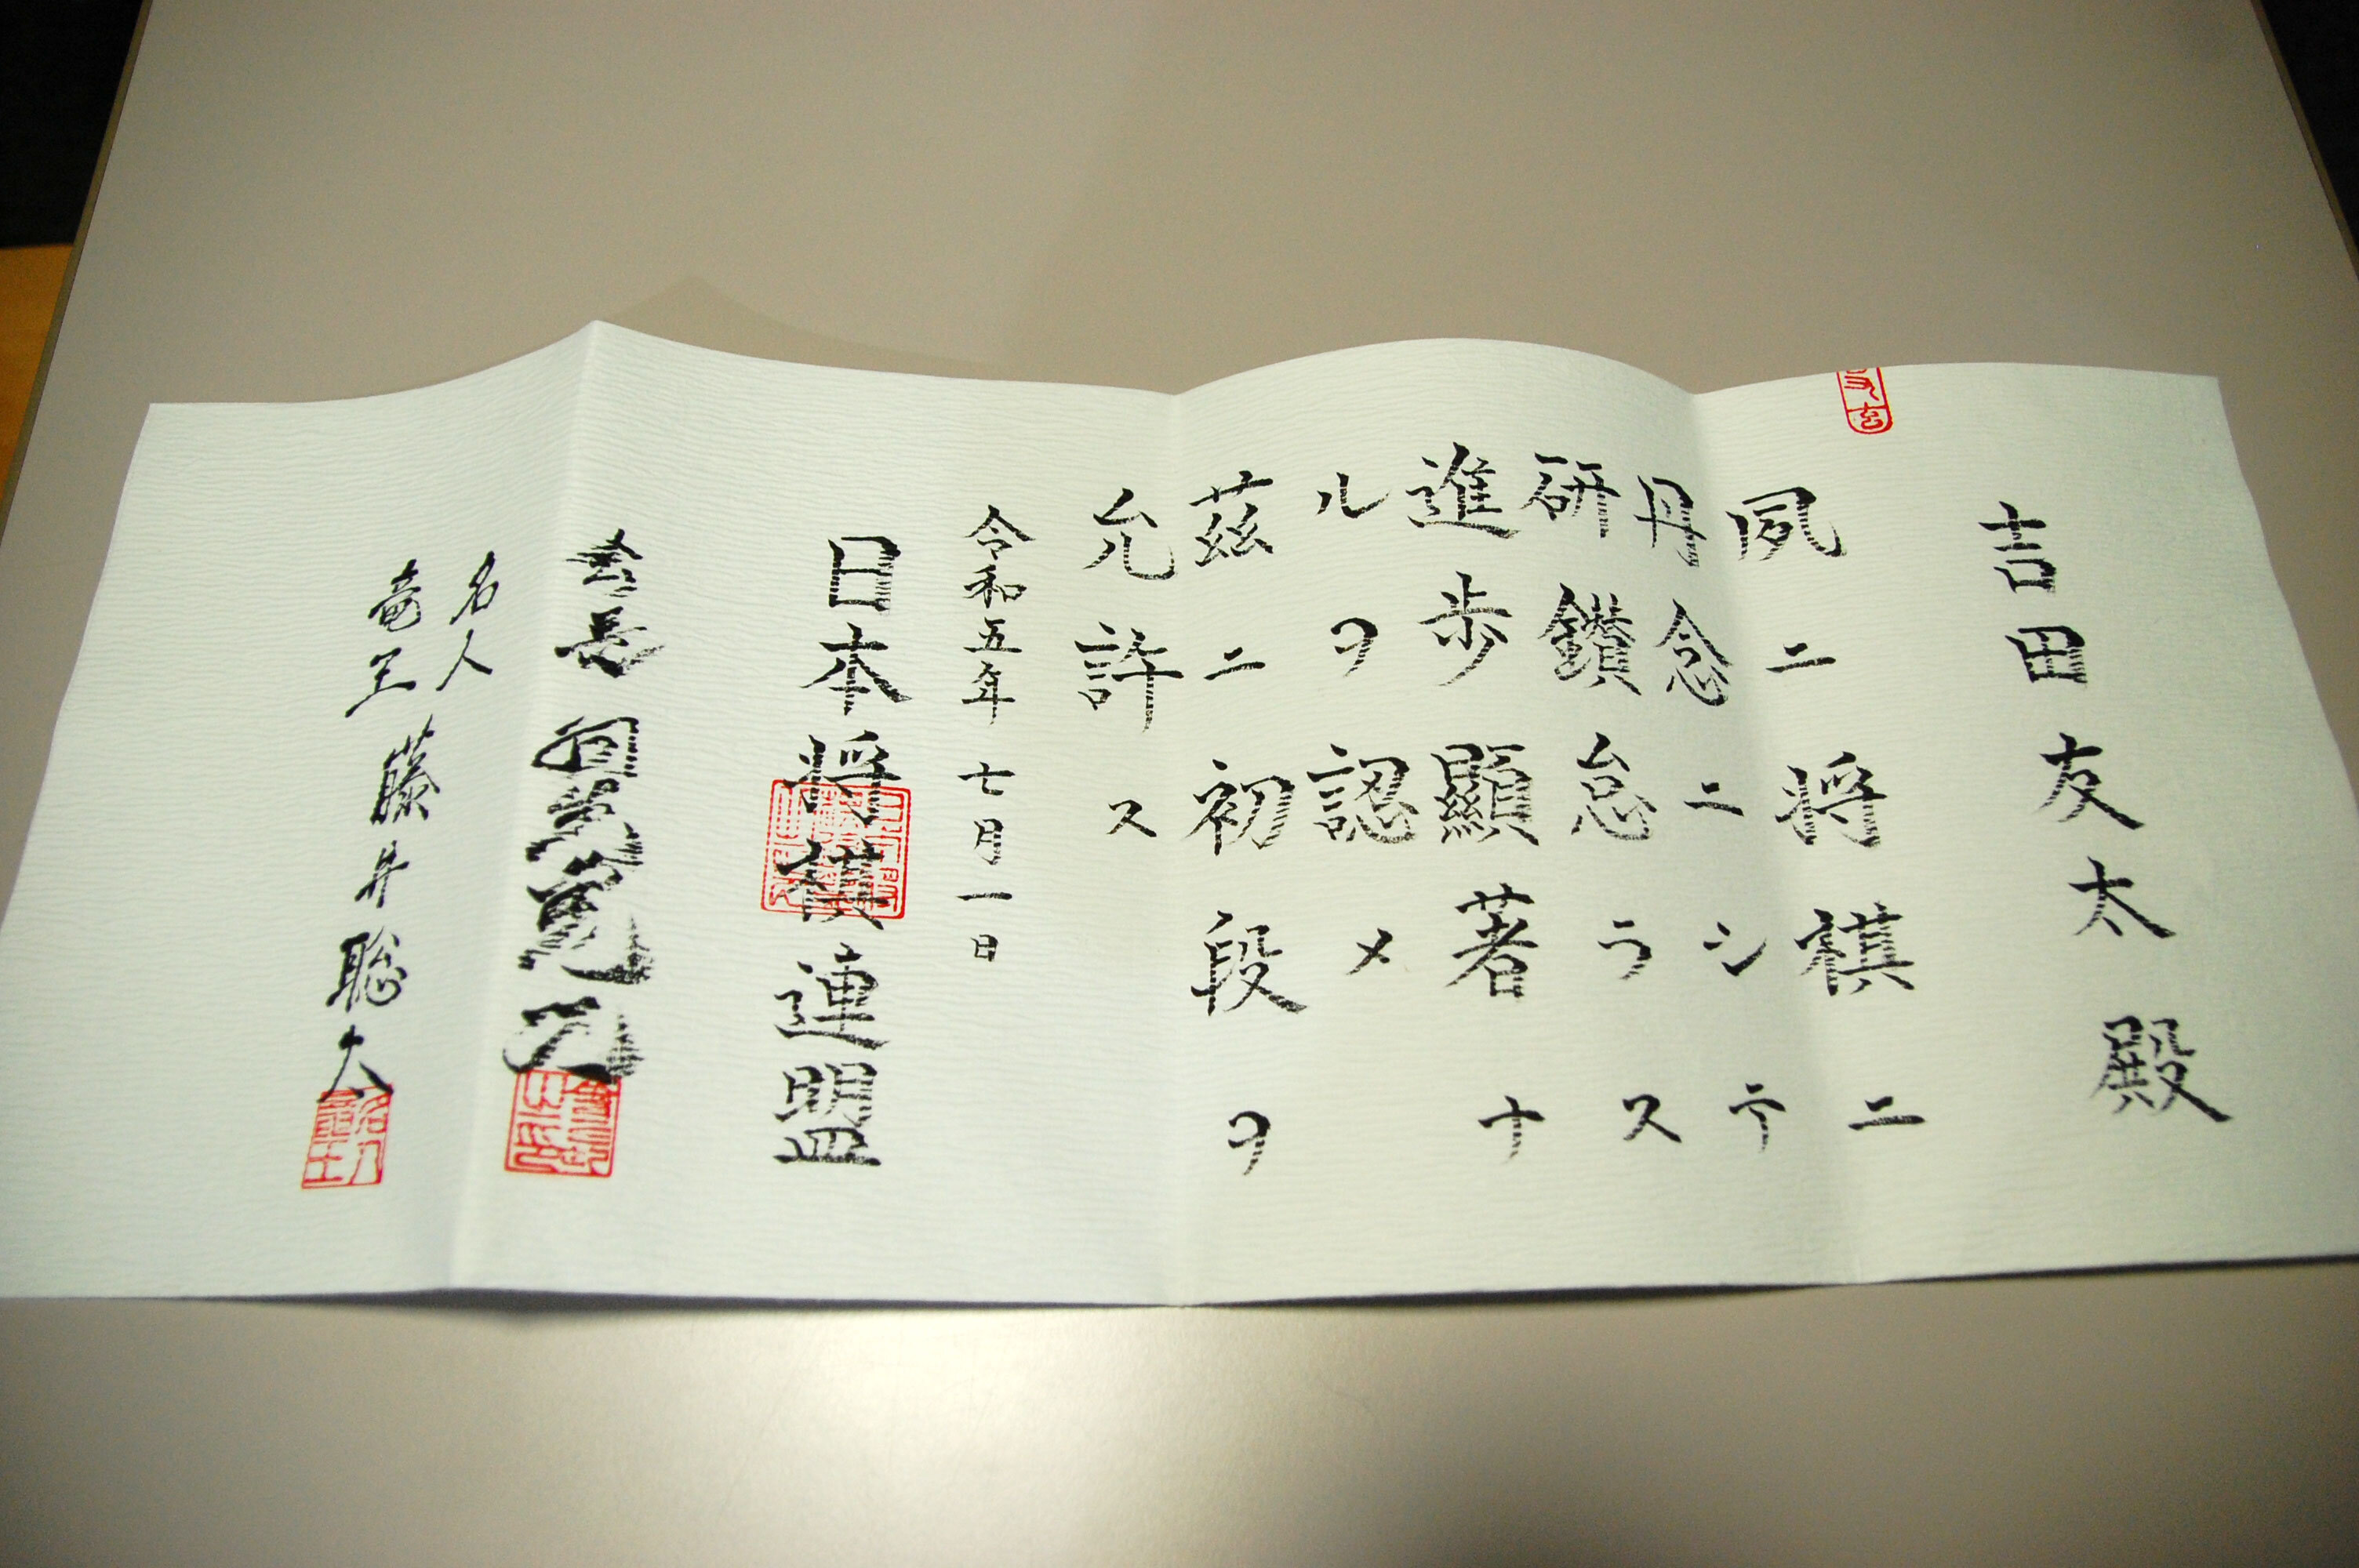 吉田友太殿
夙ニ将棋ニ
丹念ニシテ
研鑽怠ラス
進歩顯著ナ
ルヲ認メ
茲ニ初段ヲ
允許ス
令和五年七月一日
日本将棋連盟
会長
名人
竜王 藤井聡太